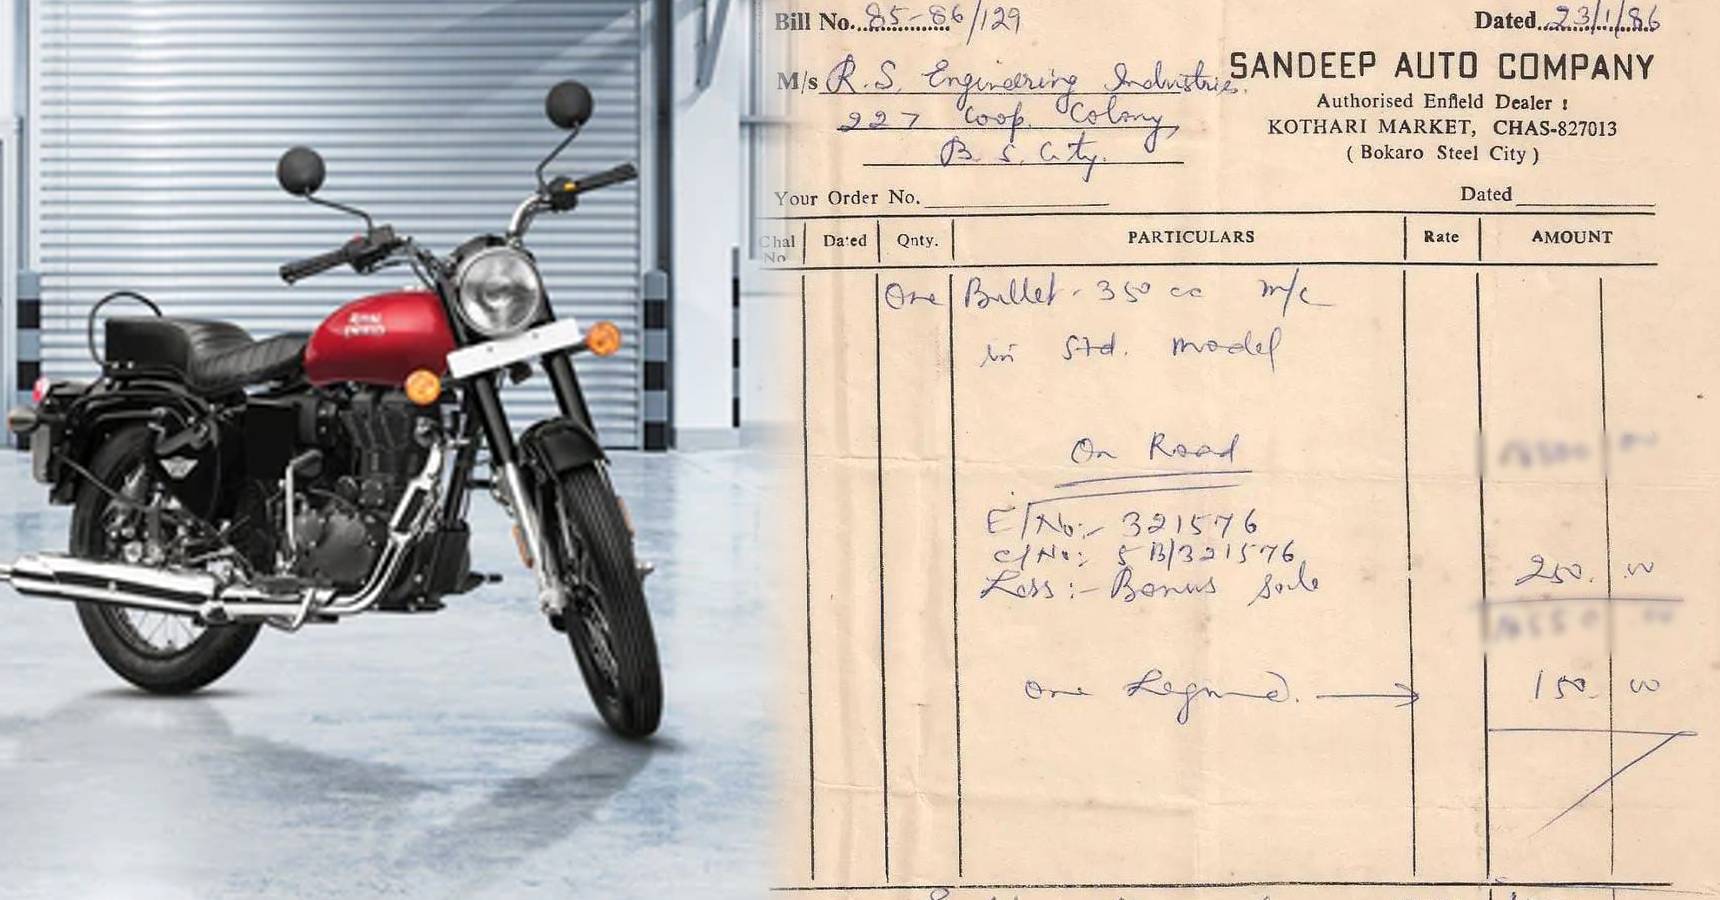 ROYAL ENFIELD
Bill No. 85-86/129 Dated 23/1/86
M/s R.S. Engineering Industries.
227 Coop. Colony,
B. S. City.
SANDEEP AUTO COMPANY
Authorised Enfield Dealer :
KOTHARI MARKET, CHAS-827013
( Bokaro Steel City )
Your Order No. Dated
Chal No Dated Qnty. PARTICULARS Rate AMOUNT
One Bullet - 350 cc m/c
in Std. model
On Road
E/No:- 321576
C/No: 5B/321576
Less :- Bonus Sale 250. 00
One 150. 00